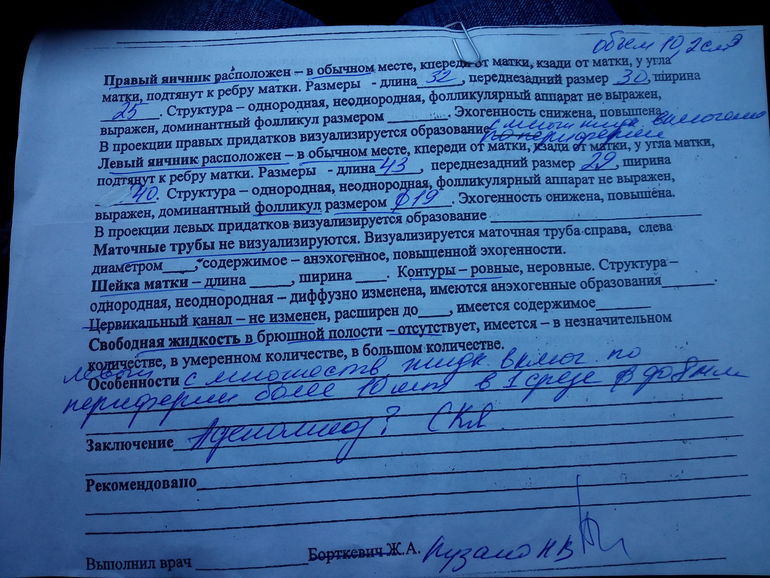 объем 10,2 см3
Правый яичник расположен – в обычном месте, кпереди от матки, кзади от матки, у угла
матки, подтянут к ребру матки. Размеры - длина 32, переднезадний размер 30, ширина
25. Структура – однородная, неоднородная, фолликулярный аппарат не выражен,
выражен, доминантный фолликул размером ______. Эхогенность снижена, повышена.
с множ жидк включения
В проекции правых придатков визуализируется образование по периферии
Левый яичник расположен – в обычном месте, кпереди от матки, кзади от матки, у угла матки,
подтянут к ребру матки. Размеры - длина 43, переднезадний размер 29, ширина
40. Структура – однородная, неоднородная, фолликулярный аппарат не выражен,
выражен, доминантный фолликул размером ф19. Эхогенность снижена, повышена.
В проекции левых придатков визуализируется образование ______
Маточные трубы не визуализируются. Визуализируется маточная труба справа, слева
диаметром ____, содержимое – анэхогенное, повышенной эхогенности.
Шейка матки – длина ____, ширина ____. Контуры – ровные, неровные. Структура –
однородная, неоднородная – диффузно изменена, имеются анэхогенные образования______.
Цервикальный канал – не изменен, расширен до____, имеется содержимое______
Свободная жидкость в брюшной полости – отсутствует, имеется – в незначительном
количестве, в умеренном количестве, в большом количестве.
левый
Особенности с множеств жидк включ по
периферии более 10 шт в 1 срезе ф до 8 мм
Заключение Аденомиоз? СКЯ.
Рекомендовано
Выполнил врач Борткевич Ж.А.